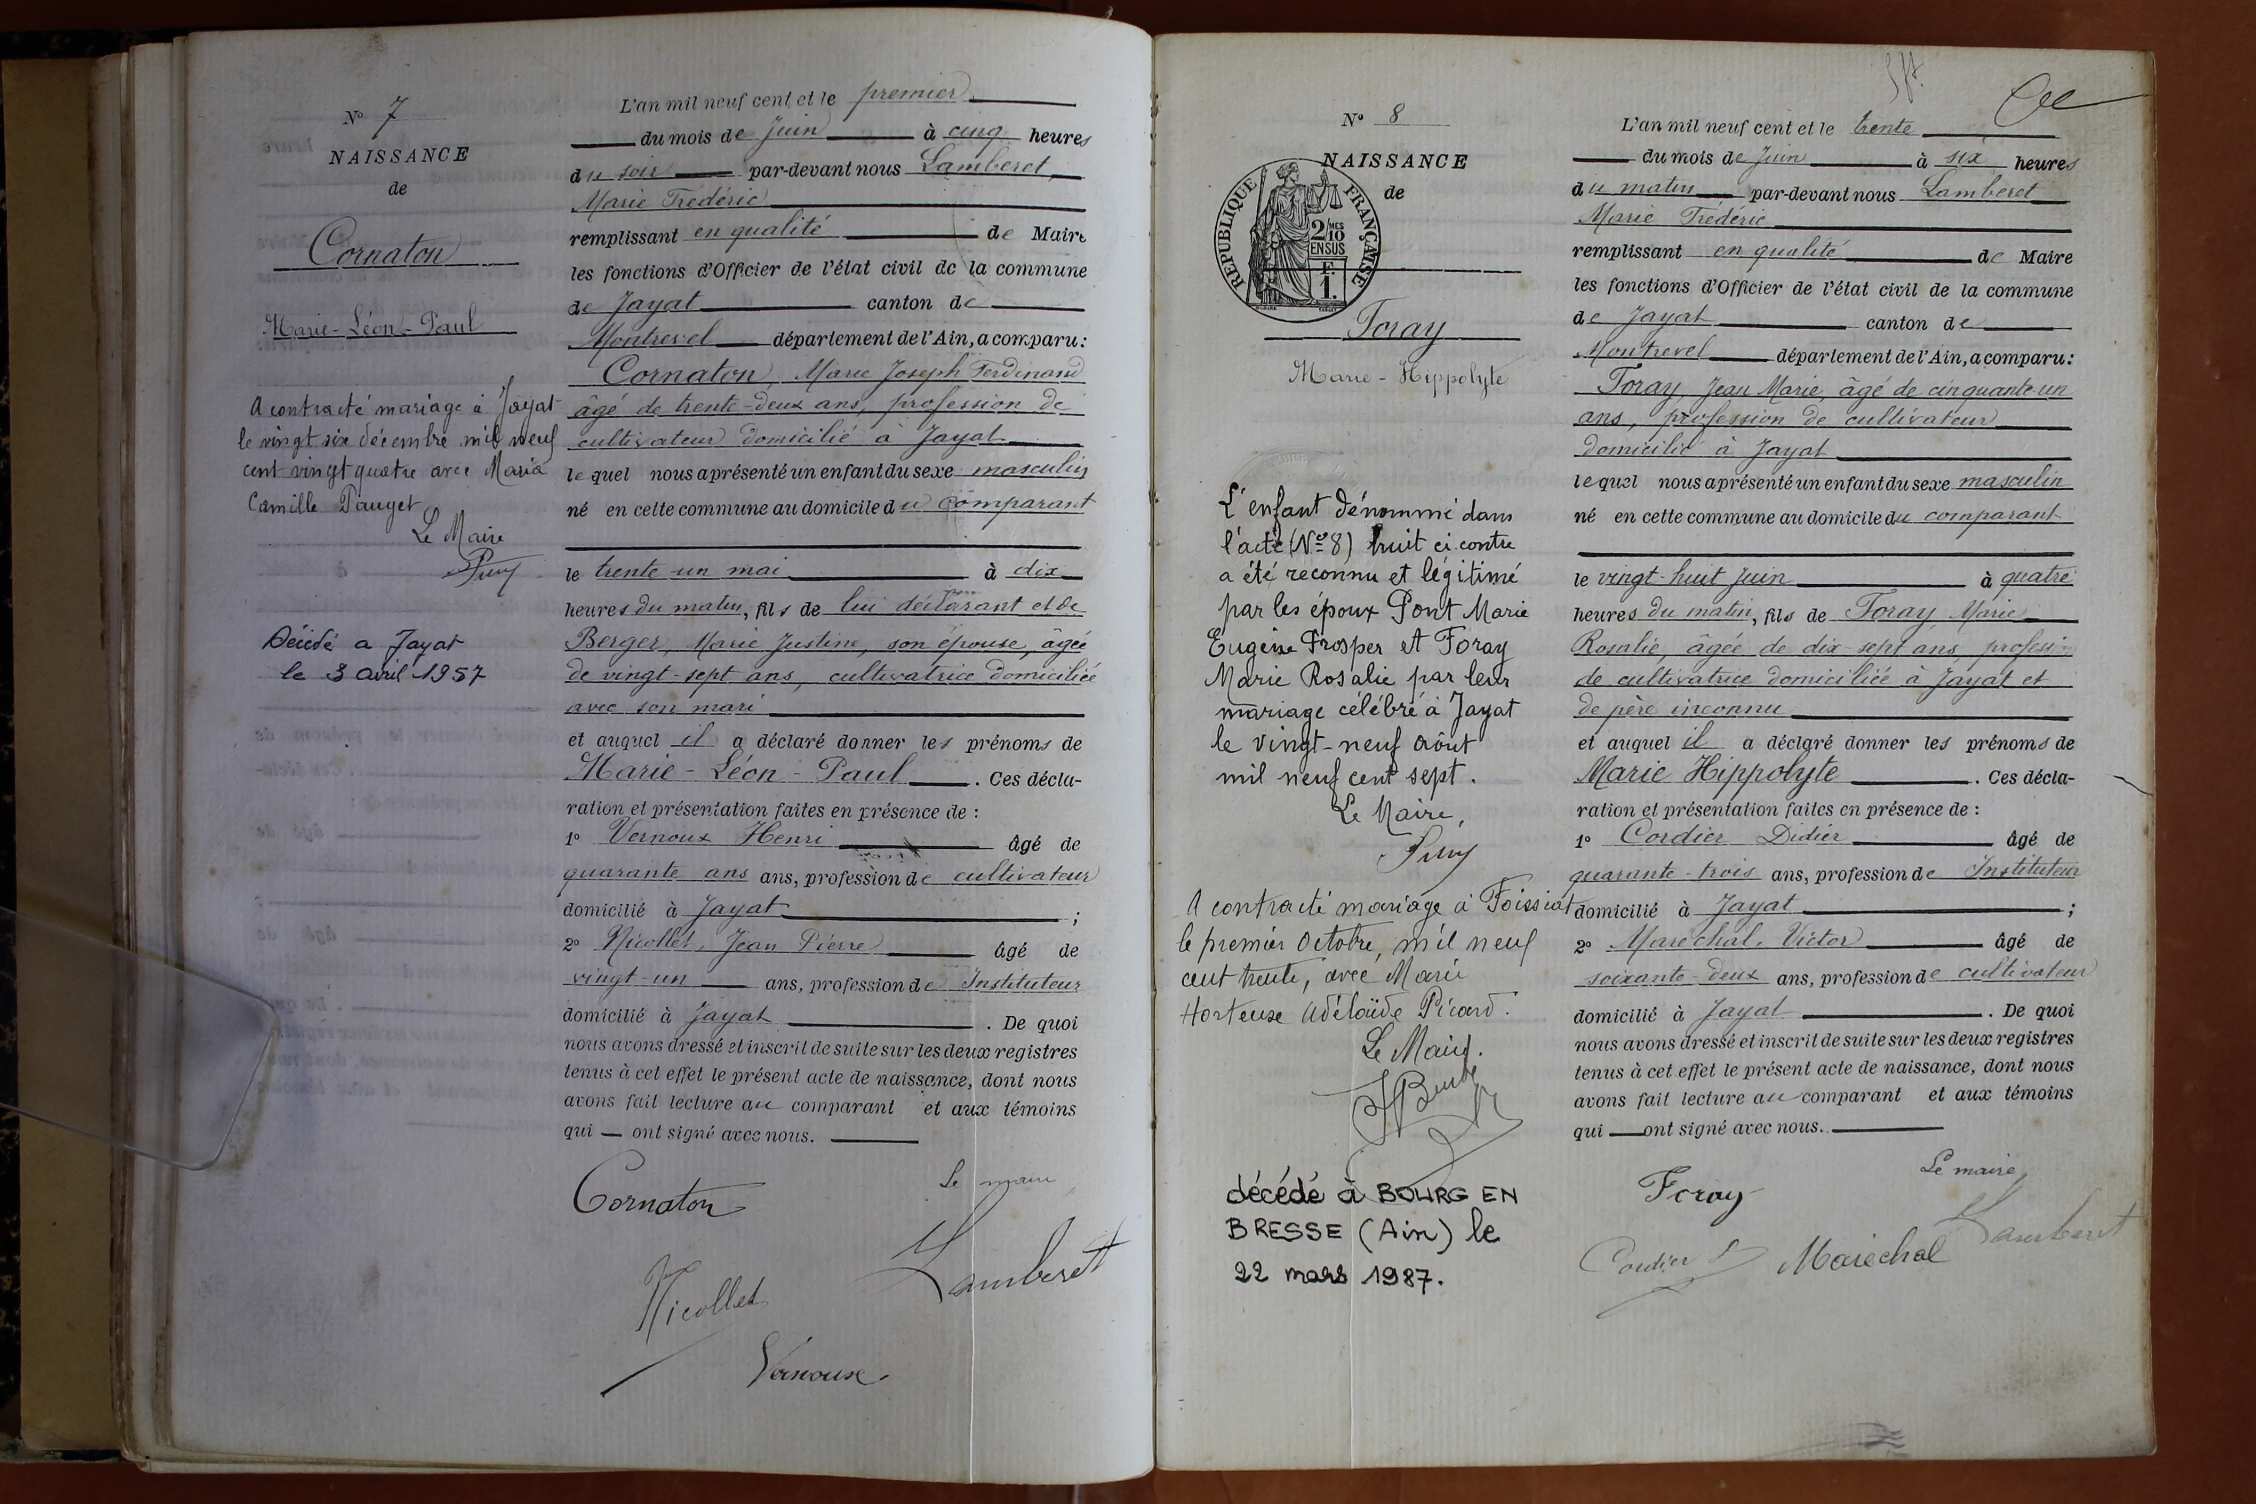 N° 7
NAISSANCE
de
Cornaton
Marie-Léon-Paul
A contracté mariage à Jayat
le vingt six décembre mil neuf
cent vingt quatre avec Maria
Camille Pauget
Le Maire
Décédé a Jayat
le 3 avril 1957
L'an mil neuf cent et le premier
du mois de Juin à cinq heures
du soir par-devant nous Lamberet
Marie Frédéric
remplissant en qualité de Maire
les fonctions d'Officier de l'état civil de la commune
de Jayat canton de
Montrevel département de l'Ain, a comparu:
Cornaton, Marie Joseph Ferdinand
âgé de trente-deux ans, profession de
cultivateur domicilié à Jayat
lequel nous a présenté un enfant du sexe masculin
né en cette commune au domicile du comparant
le trente-un mai à dix
heures du matin, fils de lui déclarant et de
Berger, Marie Justine, son épouse, âgée
de vingt-sept ans, cultivatrice domiciliée
avec son mari
et auquel il a déclaré donner les prénoms de
Marie-Léon-Paul. Ces décla-
ration et présentation faites en présence de :
1° Vernoux Henri âgé de
quarante ans ans, profession de cultivateur
domicilié à Jayat ;
2° Nicollet, Jean Pierre âgé de
vingt-un ans, profession de Instituteur
domicilié à Jayat. De quoi
nous avons dressé et inscrit de suite sur les deux registres
tenus à cet effet le présent acte de naissance, dont nous
avons fait lecture au comparant et aux témoins
qui ont signé avec nous.
Cornaton
Le maire
Lamberet
Nicollet
Vernoux
N° 8
NAISSANCE
de
REPUBLIQUE FRANÇAISE
2/10 MES
EN SUS
F.
1.
Foray
Marie-Hippolyte
L'enfant dénommé dans
l'acte (N° 8) huit ci contre
a été reconnu et légitimé
par les époux Pont Marie
Eugène Prosper et Foray
Marie Rosalie par leur
mariage célébré à Jayat
le vingt-neuf aôut
mil neuf cent sept.
Le Maire,
A contracté mariage à Foissiat
le premier Octobre, mil neuf
cent trente, avec Marie
Hortense Adélaïde Picard.
Le Maire.
décédé à BOURG EN
BRESSE (Ain) le
22 mars 1987.
L'an mil neuf cent et le trente
du mois de Juin à six heures
du matin par-devant nous Lamberet
Marie Frédéric
remplissant en qualité de Maire
les fonctions d'Officier de l'état civil de la commune
de Jayat canton de
Montrevel département de l'Ain, a comparu:
Foray, Jean Marie, âgé de cinquante-un
ans, profession de cultivateur
domicilié à Jayat
lequel nous a présenté un enfant du sexe masculin
né en cette commune au domicile du comparant
le vingt-huit Juin à quatre
heures du matin, fils de Foray, Marie
Rosalie, âgée de dix-sept ans, profession
de cultivatrice domiciliée à Jayat et
de père inconnu
et auquel il a déclaré donner les prénoms de
Marie Hippolyte. Ces décla-
ration et présentation faites en présence de :
1° Cordier Didier âgé de
quarante-trois ans, profession de Instituteur
domicilié à Jayat ;
2° Maréchal, Victor âgé de
soixante-deux ans, profession de cultivateur
domicilié à Jayat. De quoi
nous avons dressé et inscrit de suite sur les deux registres
tenus à cet effet le présent acte de naissance, dont nous
avons fait lecture au comparant et aux témoins
qui ont signé avec nous.
Le maire
Foray
Lamberet
Cordier D
Maréchal